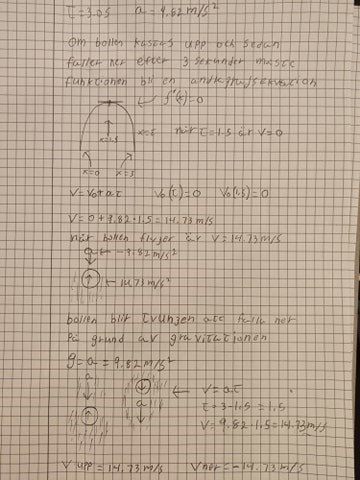 t=3.0s   a=9.82 m/s²
Om bollen kastas upp och sedan
faller ner efter 3 sekunder måste
funktionen bli en andragradsekvation
f'(x)=0
när t=1.5 är v=0
x=0   x=3
V=V₀+at   V₀(t)=0   V₀(1,5)=0
V=0+9.82·1.5=14.73 m/s
när bollen flyger är V=14.73 m/s
a ← -9.82 m/s²
← 14.73 m/s²
bollen blir tvungen att falla ner
På grund av gravitationen
g=a=9.82 m/s²
a   ← V=at
a   t=3-1.5=1.5
V=9.82·1.5=14.73 m/s
V upp=14.73 m/s   V ner=-14.73 m/s